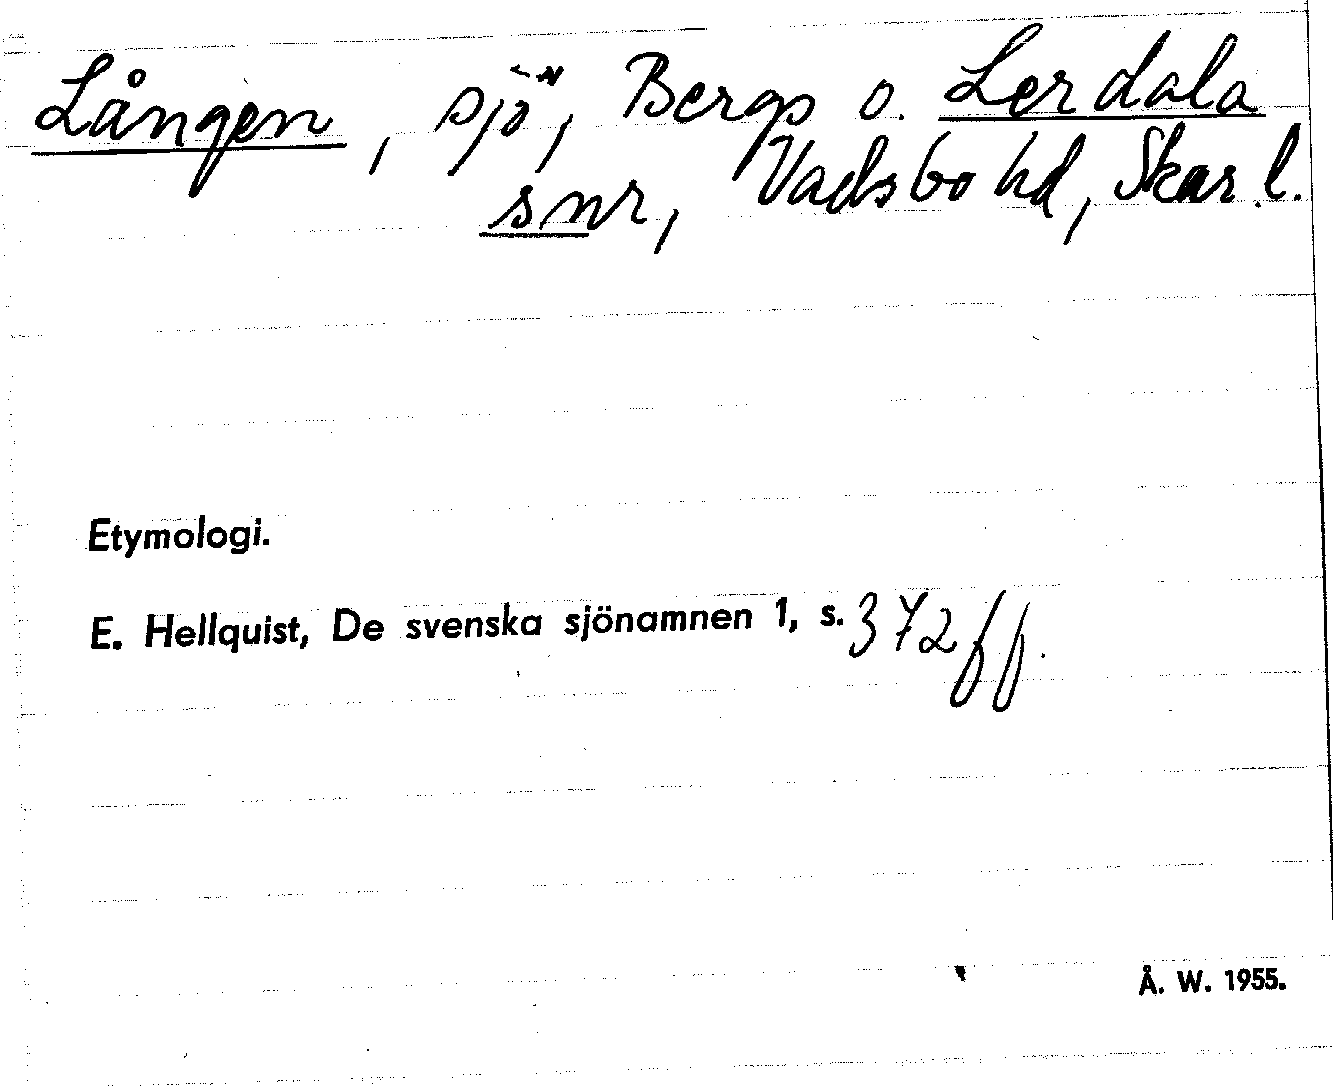 Lången, sjö, Bergs o. Lerdala
snr, Vadsbo hd, Skar.l.
Etymologi.
E. Hellquist, De svenska sjönamnen 1, s. 372 ff.
Å. W. 1955.